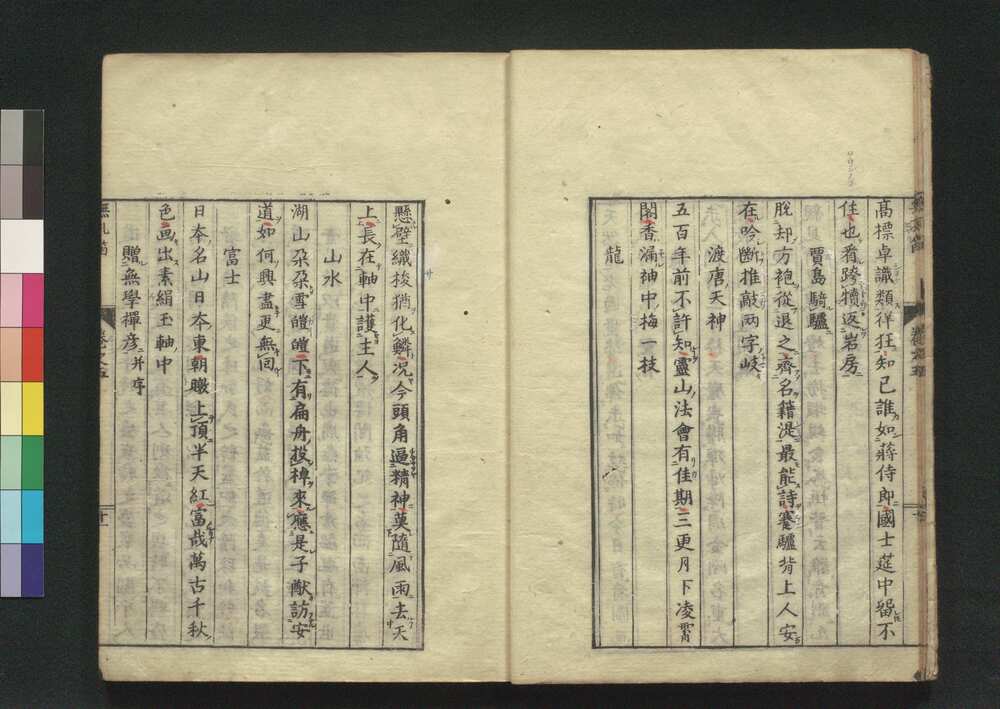 高標卓識類佯狂知已誰如蒋侍郎國士莚中留不
住也看跨犢返岩房
賈島騎驢
脫却方袍從退之齊名籍湜最能詩蹇驢背上人安
在吟斷推敲兩字岐
渡唐天神
五百年前不許知靈山法會有佳期三更月下凌霄
閣香漏神中梅一枝
龍
懸壁織梭猶化鱗况今頭角逼精神莫随風雨去天
上長在軸中護主人
山水
湖山朶朶雪皚皚下有扁舟投棹來應是子猷訪安
道如何興盡更無回
富士
日本名山日本東朝暾上頂半天紅富哉萬古千秋
色画出素絹玉軸中
贈無學禪彦并序
無孔笛
卷之五
十一